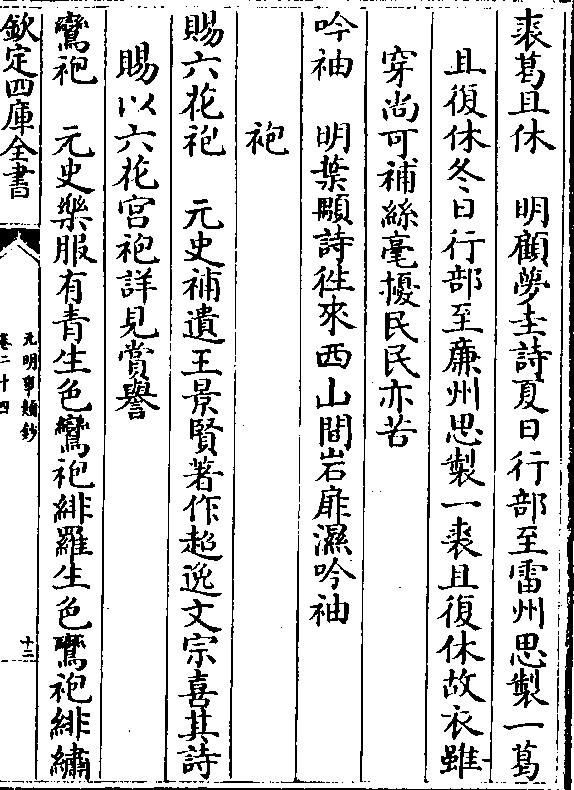 裘葛且休　明顧夢圭詩夏日行部至雷州思製一葛
且復休冬日行部至廉州思製一裘且復休故衣雖
穿尚可補絲毫擾民民亦苦
吟袖　明葉顒詩徃來西山間岩扉濕吟袖
袍
賜六花袍　元史補遺王景賢著作超逸文宗喜其詩
賜以六花宫袍詳見賞譽
鸞袍　元史樂服有青生色鸞袍緋羅生色鸞袍緋繡
欽定四庫全書
元明事類鈔
卷二十四
十三